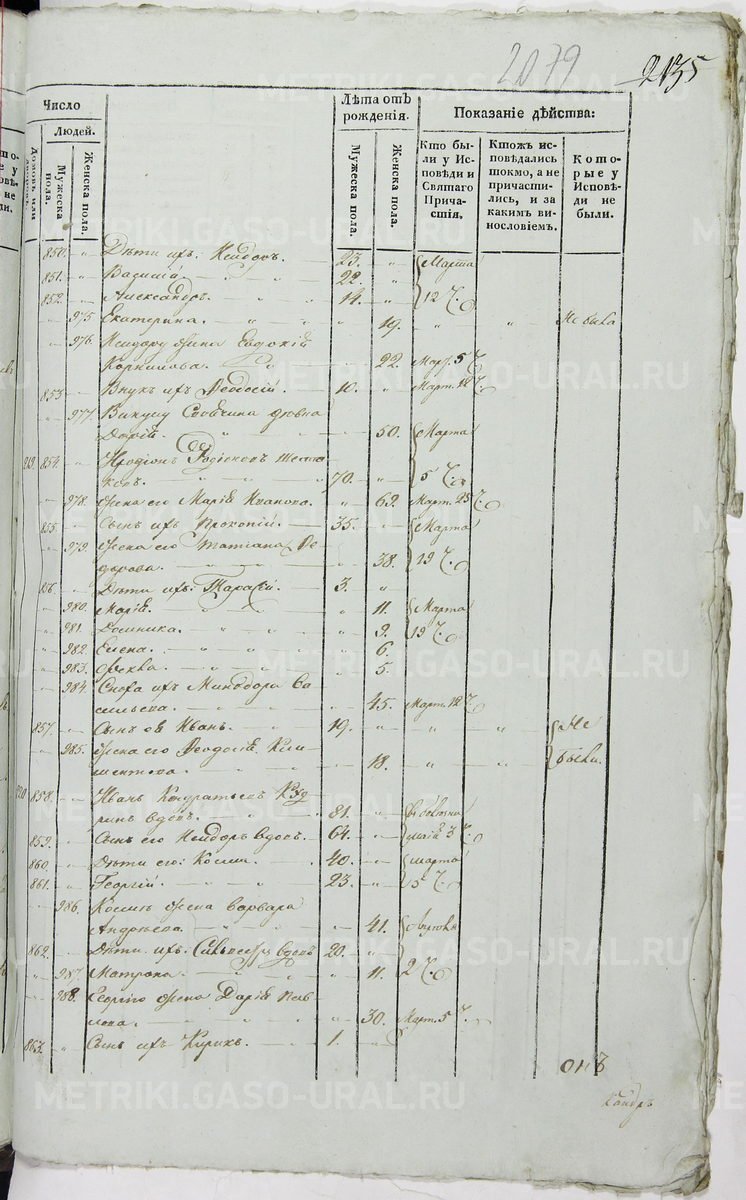 2079
2135
Число
Людей.
Домовъ или
Мужеска пола.
Женска пола.
Лѣта отъ рожденія.
Мужеска пола.
Женска пола.
Показаніе дѣйства:
Кто были у Исповѣди и Святаго Причастія.
Ктожъ исповѣдались токмо, а не причастились, и за какимъ винословіемъ.
Которые у Исповѣди не были.
850. „ Дѣти ихъ: Исидоръ. 23. „ Марта
851. „ Василій. 22. „
852. „ Александръ. 14. „ 12 ч.
„ 975. Екатерина. „ 19. „ „ Не была
„ 976. Исидору жена Евдокія
22. Март. 5 ч.
853. Внукъ ихъ Феодосій. 10. „ Март. 12 ч.
„ 977.
Дарія. „ 50. Марта
219. 854. Иродіонъ
ковъ. 70. „ 5 ч.
„ 978. Жена его Марія Иванова. „ 69. Март. 25 ч.
855. Сынъ ихъ Прокопій. 35. „ Марта
„ 979. Жена его Татіана Ѳе-
дорова. „ 38. 19 ч.
856. Дѣти ихъ: Тарасій. 3. „
„ 980. Марія. „ 11. Марта
„ 981. Домника. „ 9. 19 ч.
„ 982. Елена. „ 6.
„ 983. Ѳекла. „ 5.
„ 984. Сноха ихъ Минодора Ва-
сильева. „ 45. Март. 12 ч.
857. „ Сынъ ея Иванъ. 19. „ „ „ Не
„ 985. Жена его Феодосія Кли-
ментова. „ 18. „ „ были.
220 858. Иванъ Кондратьевъ
ринъ вдовъ. 81. „
859. Сынъ его Исидоръ вдовъ. 64. „ маія 3 ч.
860. Дѣти его: Косма. 40. „ марта
861. Георгій. 23. „ 5 ч.
„ 986. Космы жена Варвара
Андреева. „ 41. Апрѣля
862. Дѣти ихъ: Сильвестръ вдовъ 20. „
„ 987. Матрона. „ 11. 2 ч.
„ 988. Георгію жена Дарія Пав-
лова. „ 30. Март. 5 ч.
863. „ Сынъ ихъ Кирикъ. 1. „
онъ
METRIKI.GASO-URAL.RU